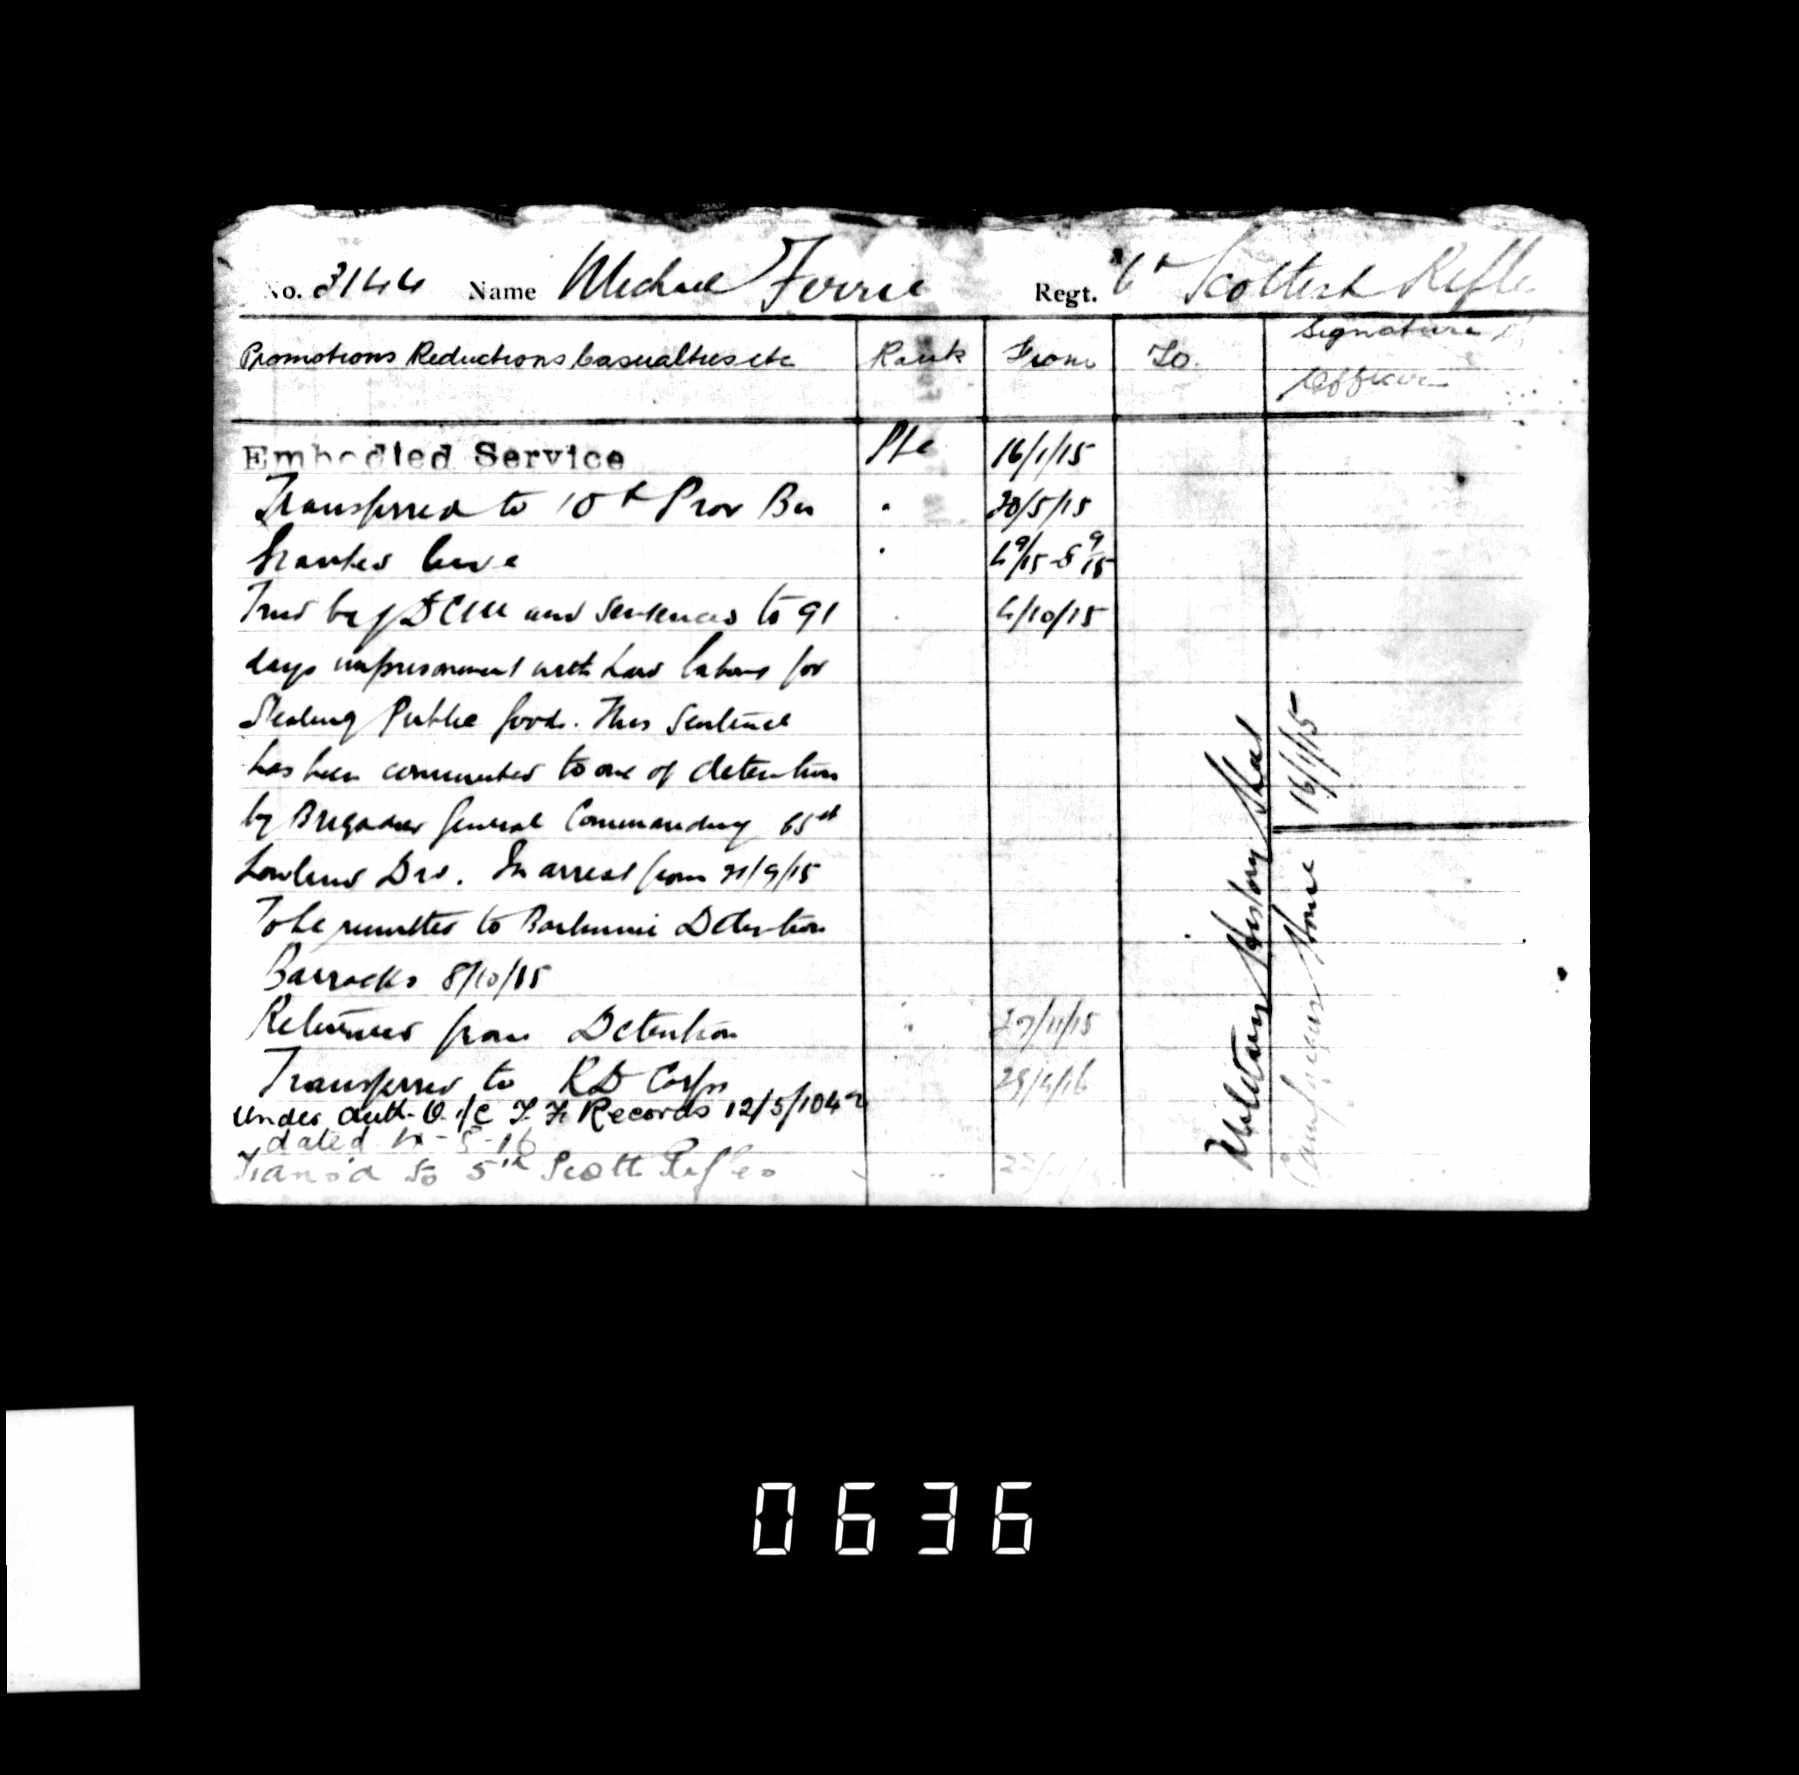 No. 3144 Name Michael Ferrie Regt. 6th Scottish Rifles
Promotions Reductions Casualties etc Rank From To. Signature of
Officer
Embodied Service Pte 16/1/15
Transferred to 10th Prov Bn " 20/5/15
Granted leave " 4/9/15 - 8/9/15
Tried by DCM and sentenced to 91 " 4/10/15
days imprisonment with hard labour for
Stealing Public goods. This sentence
has been commuted to one of detention
by Brigadier General Commanding 65th
Lowland Div. In arrest from 21/9/15
To be committed to Barlinnie Detention
Barracks 8/10/15
Returned from Detention " 27/11/15
Transferred to RD Corps 29/4/16
under auth. O i/c T. F. Records 12/5/1042
dated -5-16
Trans'd to 5th Scott Rifles "
Military History Sheet
Home 16/1/15